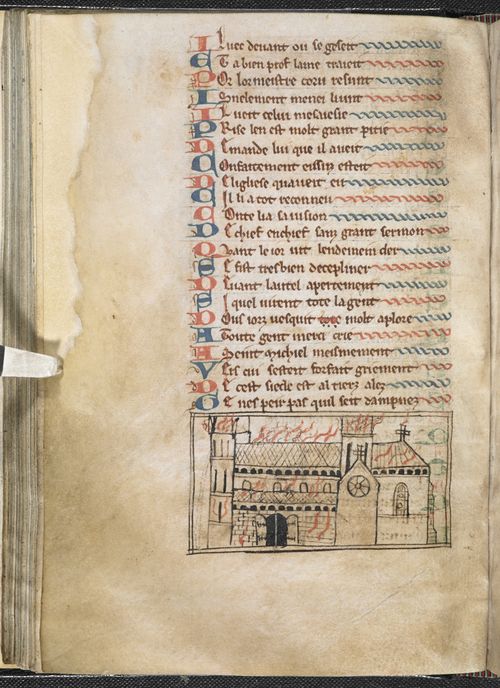 I luec deuant ou se geseit
E T a bien pres laine traueit
P Or lor mestre coru resunt
I Snelement menei liunt
I L ueit celui mesaesie
P Rise len est molt grant pitie
D Emande lui que il aueit
C Onfaitement eissi esteit
D E liglise quaueit eu
C Il li a tot reconneu
C Onte li a sa uision
D E chief en chief sanz grant sermon
Q Vant le ior uit lendemein cler
E L fist tres bien decepliner
D Euant lautel apertement
E I quel uirent tote la gent
D Ous iorz uesquit tote molt aplore
A Toute gent merci crie
A Seint Michiel meismement
V Ers cui sesteit forfait griement
D E cest siecle est al tierz alez
D E nes peir pas quil seit dampnez